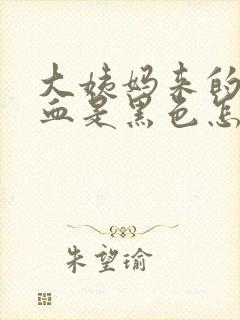 大姨妈来的
血是黑色怎
朱望瑜